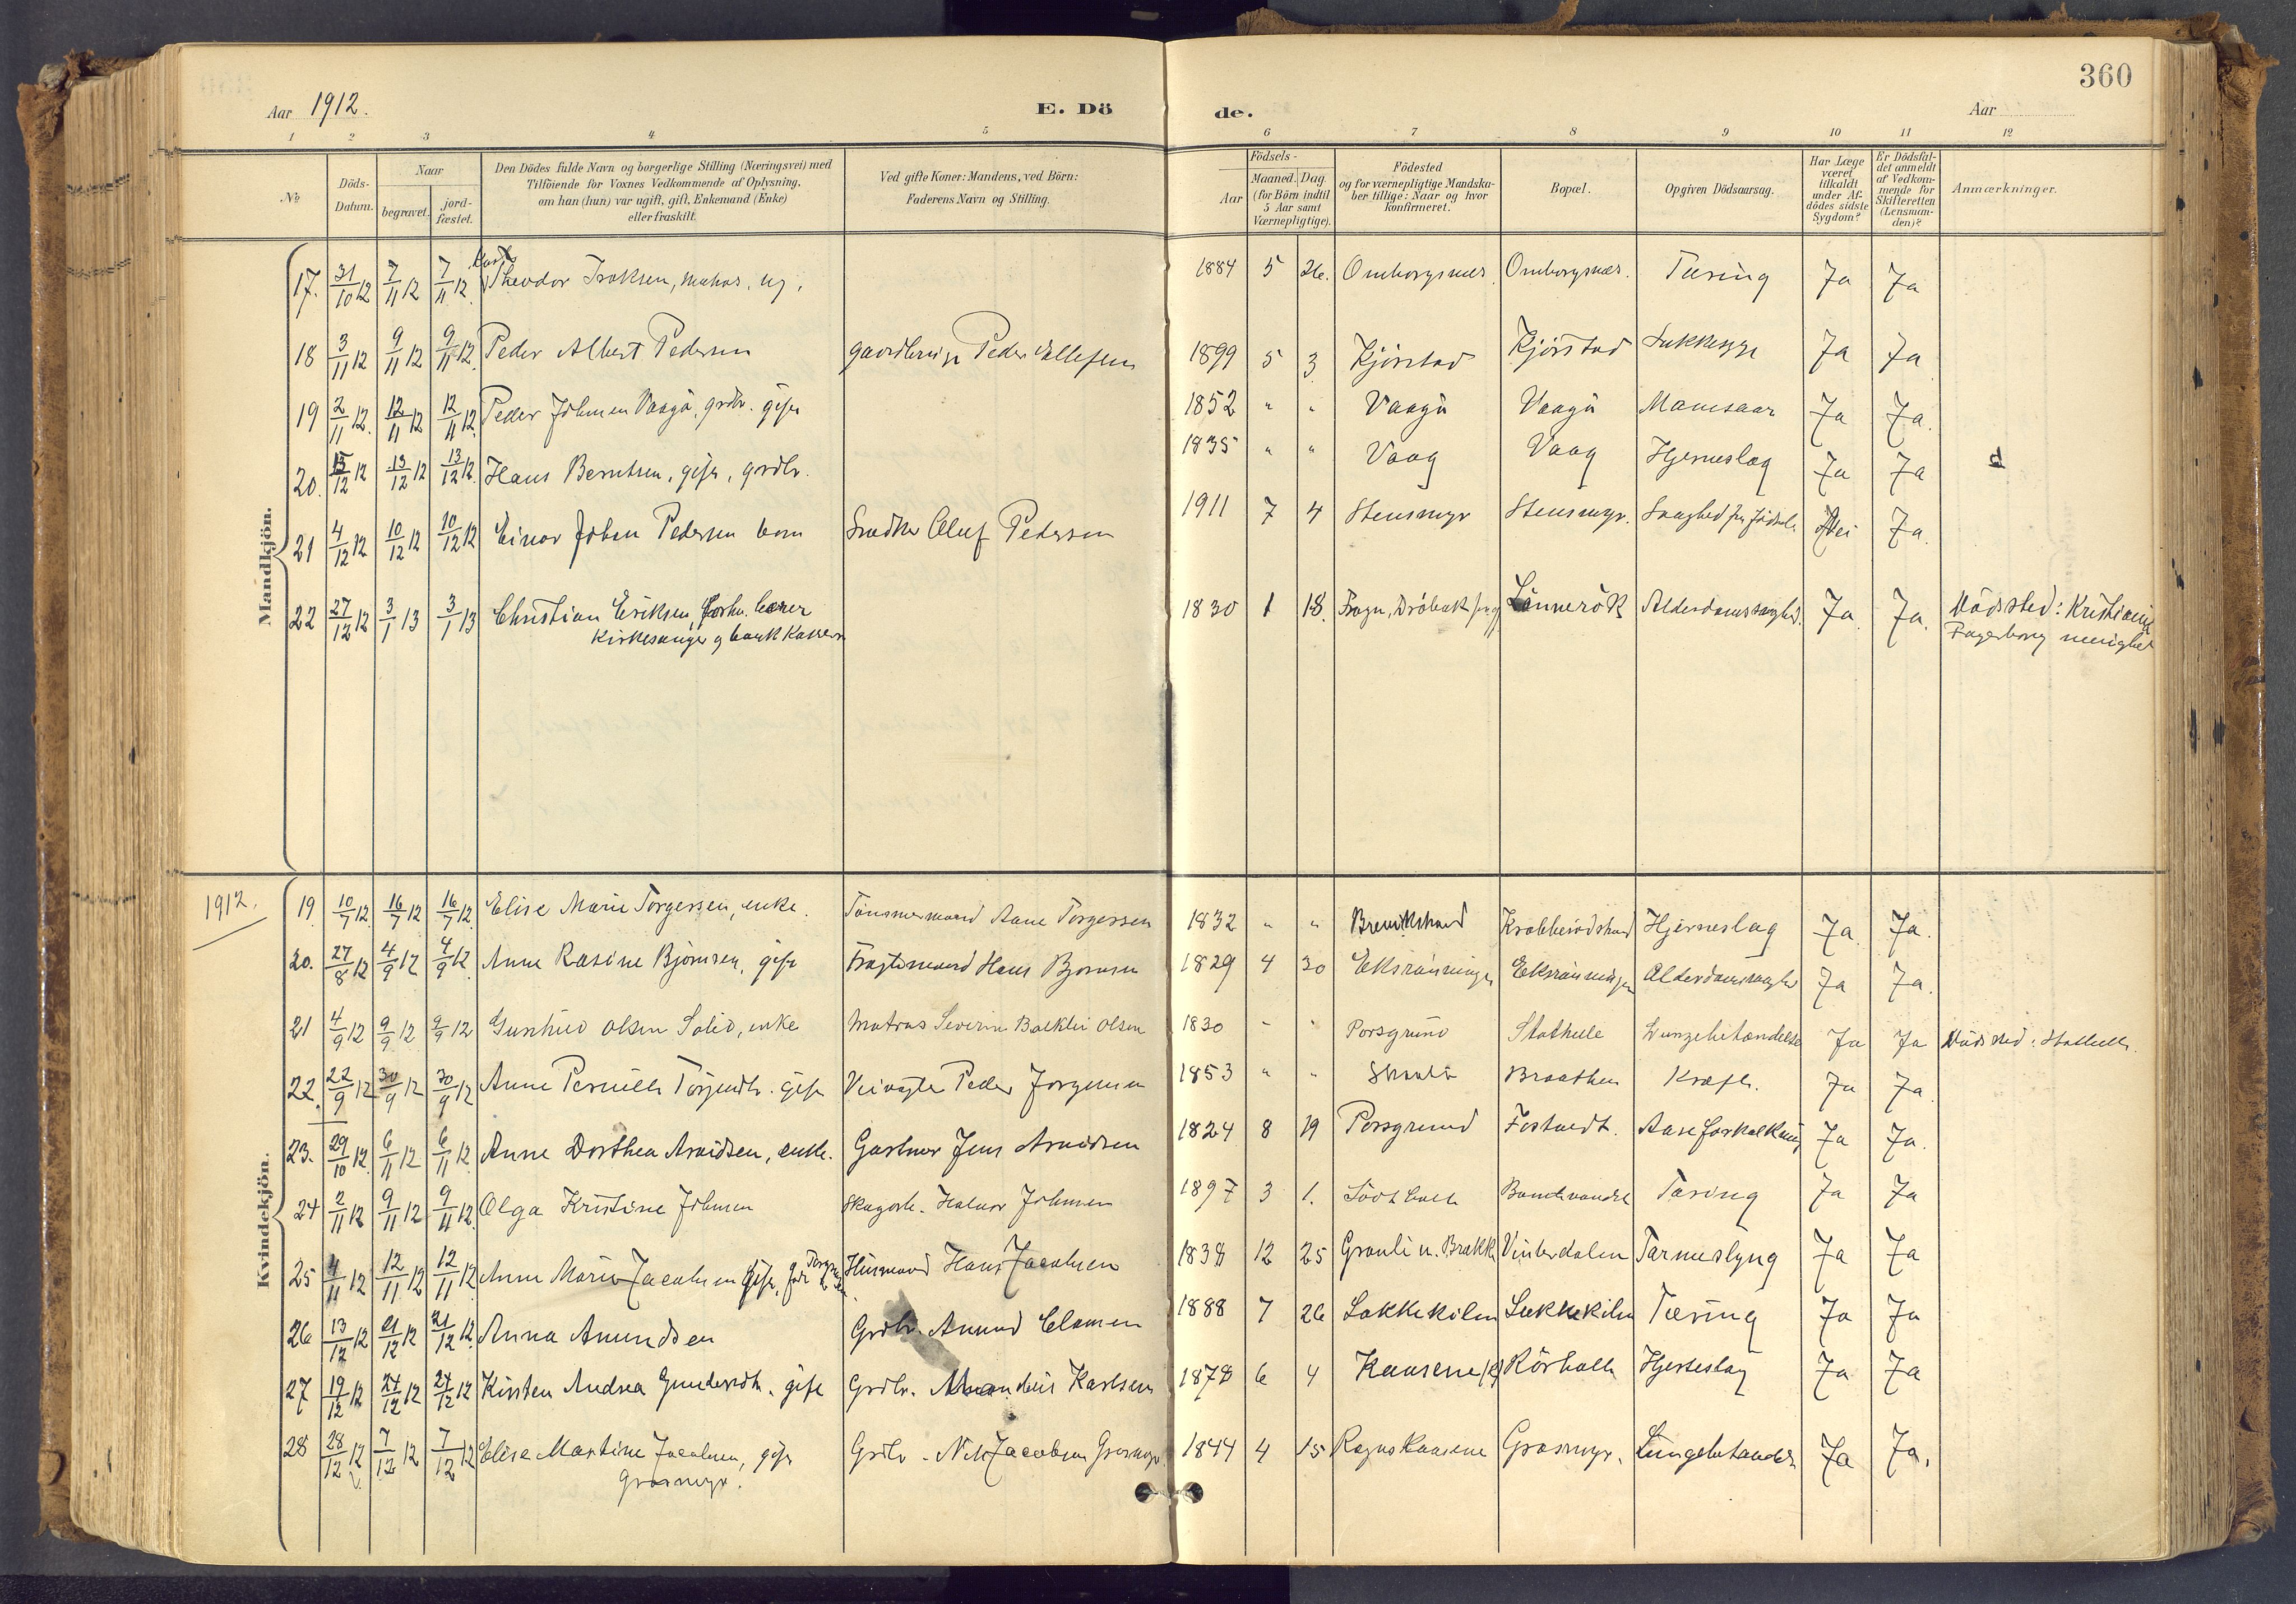 360
Aar 1912. E. Dö de. Aar
1 2 3 4 5 6 7 8 9 10 11 12
No
Döds-Datum.
Naar
begravet.
jord-fæstet.
Den Dödes fulde Navn og borgerlige Stilling (Næringsvei) med
Tilföiende for Voxnes Vedkommende af Oplysning,
om han (hun) var ugift, gift, Enkemand (Enke)
eller fraskilt.
Ved gifte Koner: Mandens, ved Börn:
Faderens Navn og Stilling.
Födsels-
Aar
Maaned. Dag
(for Börn indtil
5 Aar samt
Værnepligtige).
Födested
og for værnepligtige Mandska-
ber tillige: Naar og hvor
konfirmeret.
Bopæl.
Opgiven Dödsaarsag.
Har Læge
været
tilkaldt
under Af-
dödes sidste
Sygdom?
Er Dödsfal-
det anmeldt
af Vedkom-
mende for
Skifteretten
(Lensman-
den)?
Anmærkninger.
Mandkjön.
17. 31/10 12 7/11 12 7/11 12. Theodor Isaksen, matros, ug. 1884 5 26. Omborgsnes Omborgsnes. Tæring Ja Ja
18 3/11 12 9/11 12 9/11 12. Peder Albert Pedersen gaardbruger Peder Ellefsen 1899 5 3 Kjörstad Kjörstad Sukkersyge Ja Ja
19 2/11 12. 12/11 12 12/11 12. Peder Johnsen Vaagö, grdbr. gift 1852 " " Vaagö Vaagö Mavesaar Ja Ja.
20. 5/12 12 13/12 12 13/12 12. Hans Berntsen, gift, grdbr. 1835 " " Vaag Vaag Hjerneslag Ja Ja
21 4/12 12 10/12 12 10/12 12 Einar Johan Pedersen barn Snedker Oluf Pedersen 1911 7 4 Stensmyr Stensmyr. Svaghed fra födsel Nei Ja.
22 27/12 12 3/1 13 3/1 13 Christian Eriksen, forhv. lærer
kirkesanger og bankkasserer 1830 1 18. Frogn, Dröbak Lönnerök Alderdomssvaghed. Ja Ja. Dödsted: Kristiania
Fagerborg menighet
1912.
Kvindekjön.
19. 10/7 12. 16/7 12 16/7 12. Elise Marie Torgersen, enke. Tömmermand Aane Torgersen 1832 " " Brevikstrand Krabberödstrand Hjerneslag Ja Ja.
20. 27/8 12 4/9 12 4/9 12. Anne Rasine Bjørnsen, gift Fragtemand Hans Bjørnsen 1829 4 30 Eksrönningen Eksrönningen Alderdomssvaghed Ja Ja.
21 4/9 12 9/9 12 9/9 12 Gunhild Olsen Solid, enke Matros Severin Olsen 1830 " " Porsgrund Stathelle Lungebetændelse Ja Ja Dödsted: Stathelle.
22. 22/9 12 30/9 12 30/9 12 Anne Pernille gift Veivogter Peder Jörgensen 1853 " " Braathen Kræft. Ja Ja.
23. 29/10 12. 6/11 12 6/11 12. Anne Dorthea Arvidsen, enke. Gartner Jens Arvidsen 1824 8 19 Porsgrund Fostvedt. Aareforkalkning Ja Ja.
24 2/11 12 9/11 12 9/11 12. Olga Kristine Johnsen Skogarb. Halvor Johnsen 1897 3 1. Tæring Ja Ja
25 4/11 12 12/11 12 12/11 12. Anne Marie Jacobsen gift, Husmand Hans Jacobsen 1838 12 25 Gronli u. Brækk Vinterdalen Tarmeslyng Ja Ja
26 13/12 12 21/12 12 21/12 12. Anna Amundsen Grdbr. Amund Clamen 1888 7 26 Lakkekilen Lækkekilen Tæring Ja Ja
27 19/12 12 24/12 12 24/12 12 Kirsten Andrea Gundersdtr. gift Grdbr. Karlsen 1878 6 4 Kaasene Rörholt Hjerteslag Ja Ja
28 28/12 12 7/12 12 7/12 12 Elise Martine Jacobsen, gift
Grasmyr. Grdbr. Nils Jacobsen Grasmyr. 1844 4 15 Rognskaasene Grasmyr. Lungebetændelse Ja Ja.